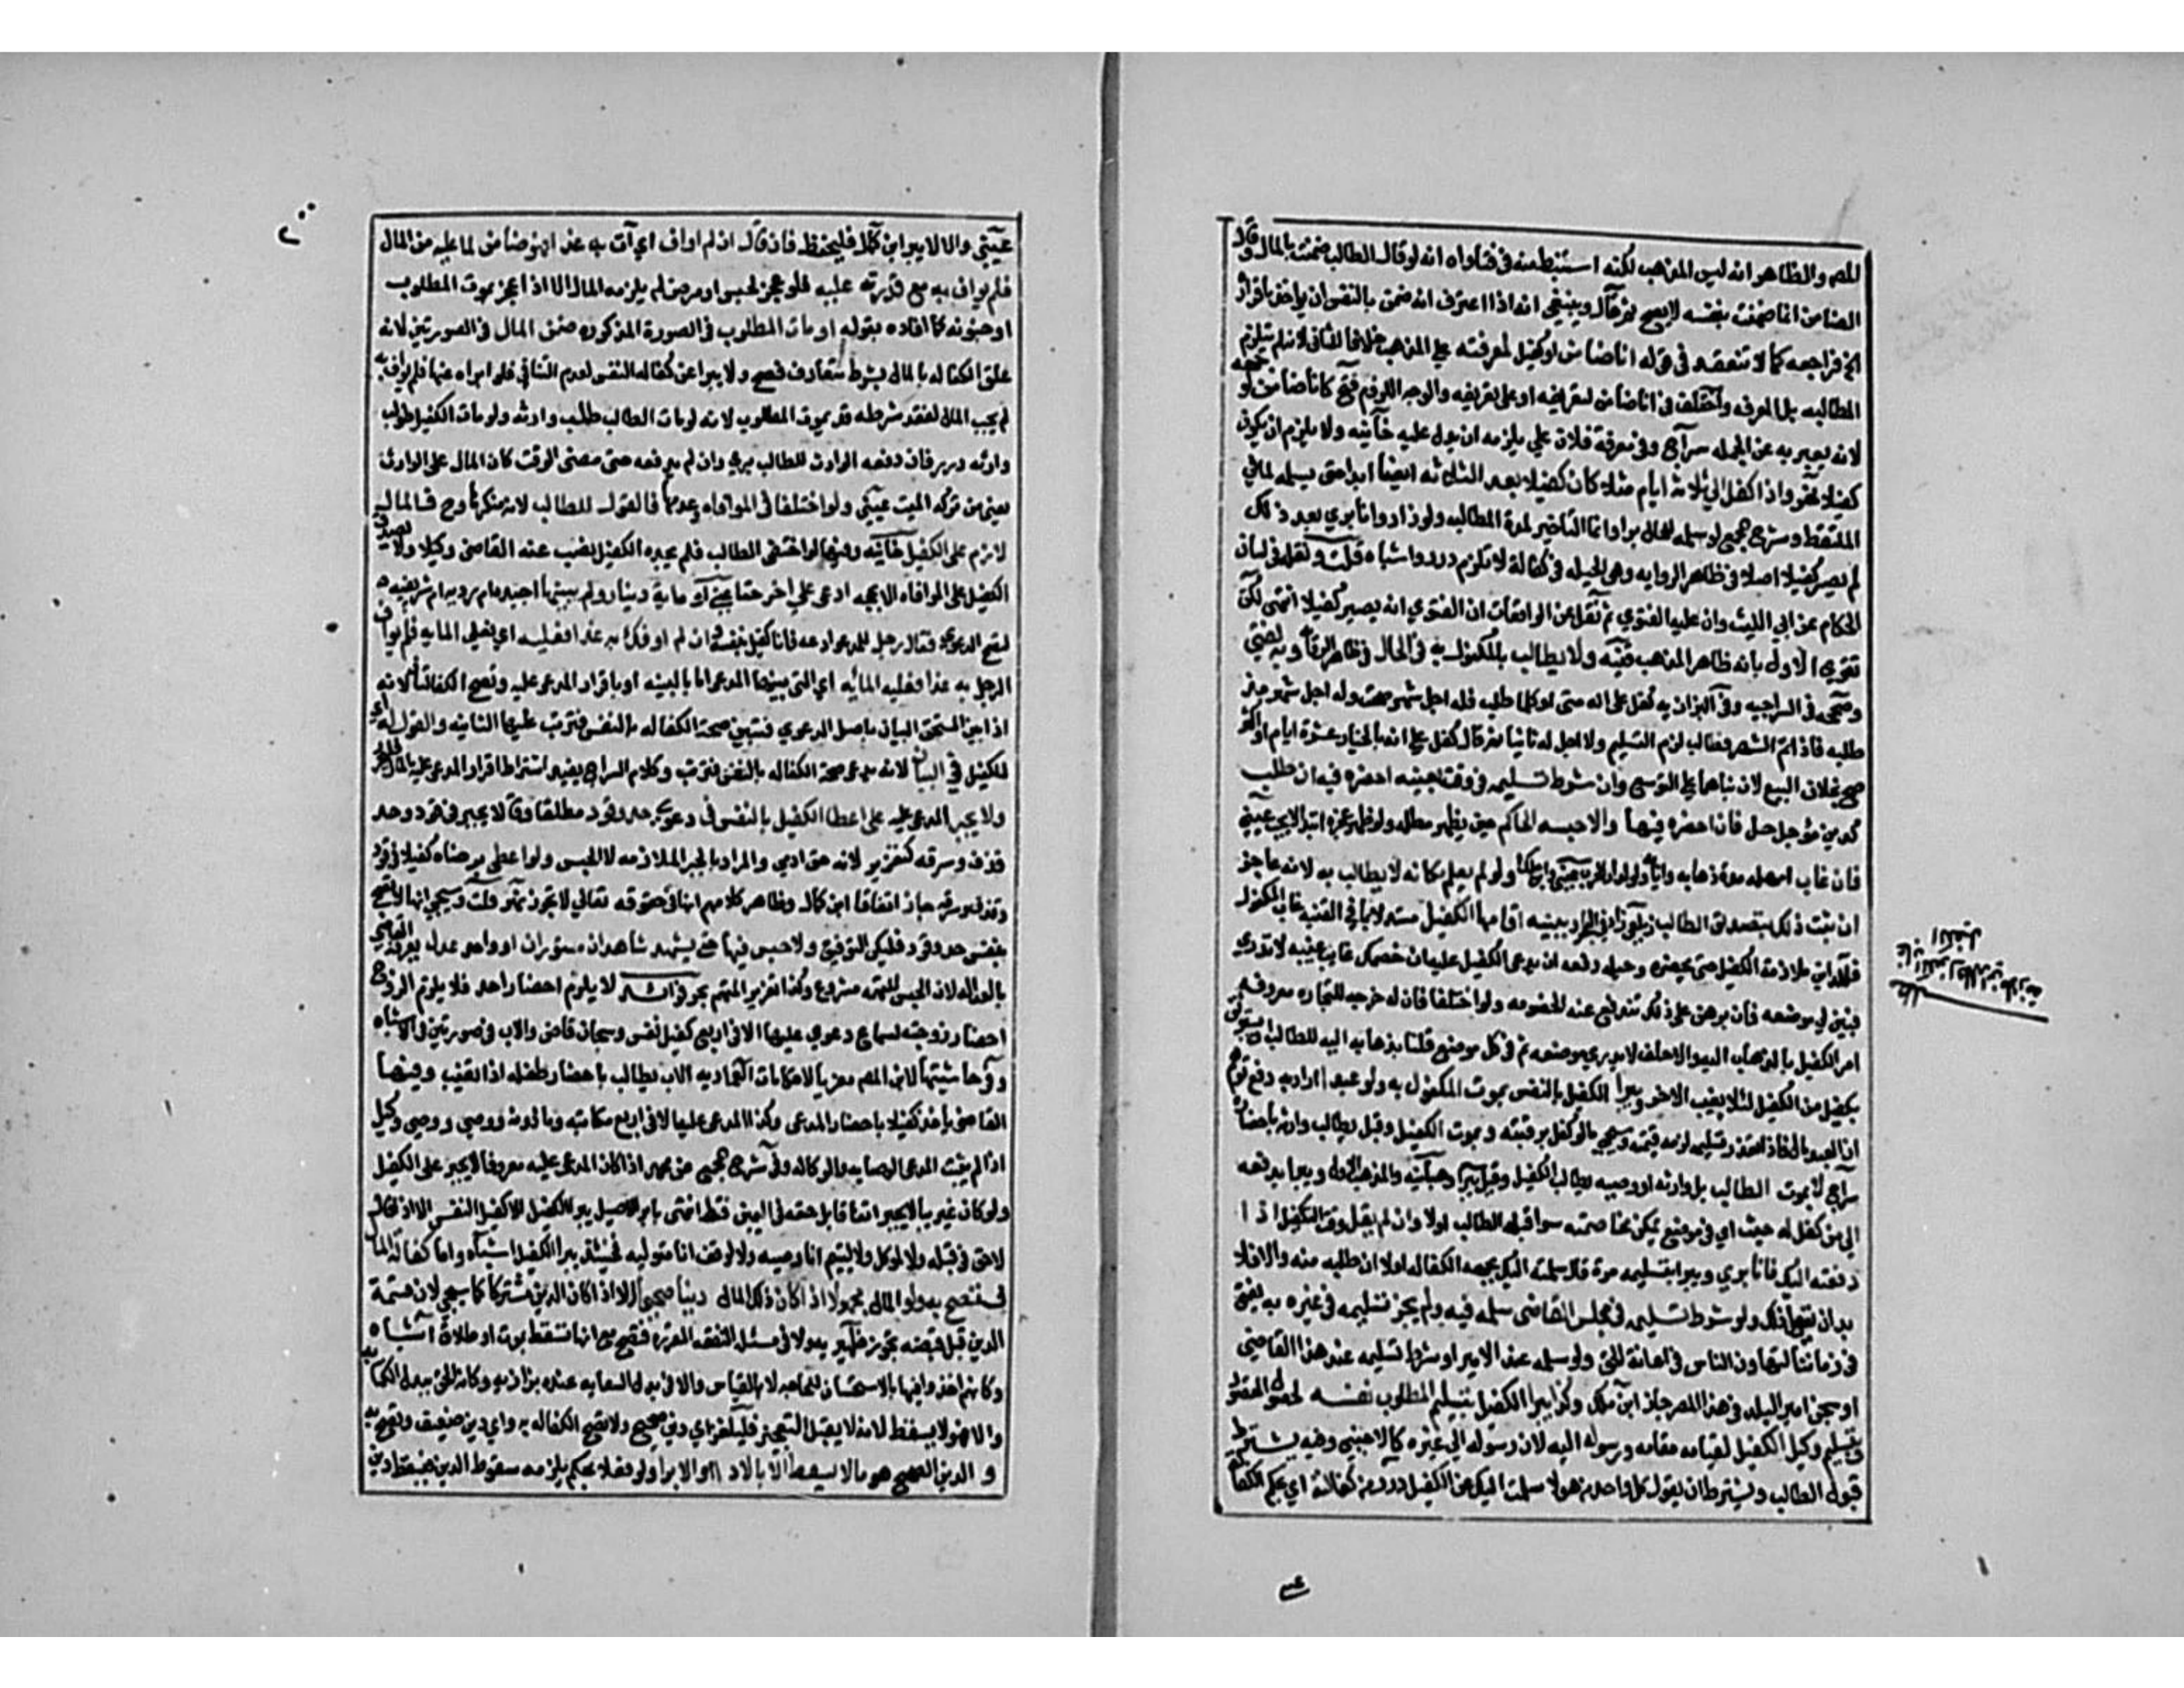 المصر والظاهر انه ليس المذهب لكنه استنبطه في فتاواه انه لو قال الطالب ضمنت بالمال وقال
الضامن انما ضمنت بنفسه لا يصح ثم قال وينبغي انه اذا اعترف انه ضمن بالنفس ان يواخذ باقراره
الخ فراجعه كما لا تنعقد في قوله انا ضامن او كفيل لمعرفته على المذهب خلافا للثاني لانه لم يلتزم
المطالبه بل المعرفه واختلف في انا ضامن لتعريفه او على تعريفه والوجه اللزوم فتح كانا ضامن لوجهه
لانه يعبر به عن الجمله سراج وفي معرفة فلان علي يلزمه ان يدل عليه خانيه ولا يلزم ان يكون
كفيلا نهر واذا كفل الي ثلاثة ايام مثلا كان كفيلا بعد الثلاثه ايضا ابدا حتى يسلمه لما في
الملتقط وشرح المجمع لو سلمه للحال برا وانما التاخير لمدة المطالبه ولو زاد وانا بري بعد ذلك
لم يصر كفيلا اصلا في ظاهر الروايه وهي الحيله في كفالة لا تلزم درر واشباه قلت ونقل في لسان
الحكام عن ابي الليث وان عليه الفتوي ثم نقل عن الواقعات ان الفتوي انه يصير كفيلا انتهى لكن
تقوي الاول بانه ظاهر المذهب فتنبه ولا يطالب بالمكفول به في الحال في ظاهر الروايه وبه يفتي
وصححه في السراجيه وفي البزازيه كفل على انه متى او كلما طلب فله اجل شهر صحت وله اجل شهر منذ
طلبه فاذا تم الشهر فطالب لزم التسليم ولا اجل له ثانيا ثم قال كفل على انه بالخيار عشرة ايام او اكثر
صح بخلاف البيع لان مبناها على التوسع وان شرط تسليمه في وقت بعينه احضره فيه ان طلب
كدين مؤجل حل فان احضره فبها والا حبسه الحاكم حين يظهر مطله ولو ظهر عجزه ابتدا لا يحبسه عيني
فان غاب امهله مدة ذهابه وايابه ولو لدار الحرب عيني وابن ملك ولو لم يعلم مكانه لا يطالب به لانه عاجز
ان ثبت ذلك بتصديق الطالب زيلعي زاد في البحر او ببينه اقامها الكفيل مستدلا بما في القنيه غاب المكفول
فللداين ملازمة الكفيل حتى يحضره وحيله دفعه ان يدعى الكفيل عليه ان خصمك غاب غيبه لا تدري
فبين لي موضعه فان برهن على ذلك تندفع عنه الخصومه ولو اختلفا فان له خرجه للتجاره معروفه
امر الكفيل بالذهاب اليه والا حلف لا يدري موضعه ثم في كل موضع قلنا بذهابه اليه للطالب ان يستوثق
بكفيل من الكفيل لئلا يغيب الاخر ويبرا الكفيل بالنفس بموت المكفول به ولو عبدا اراد به دفع توهم
ان العبد مال فاذا تعذر تسليمه لزمه قيمته وسيجي ما لو كفل برقبته وبموت الكفيل وقيل يطالب وارثه باحضاره
سراج لا بموت الطالب بل وارثه او وصيه يطالب الكفيل وقيل يبرا وهبانيه والمذهب الاول ويبرا بدفعه
الي من كفل له حيث اي في موضع يمكن مخاصمته سوا قبله الطالب او لا وان لم يقل وقت التكفيل اذا
دفعته اليك فانا بري ويبرا بتسليمه مرة قال سلمته اليك بجهة الكفاله اولا ان طلبه منه والا فلا
بد ان يقول ذلك ولو شرط تسليمه في مجلس القاضي سلمه فيه ولم يجز تسليمه في غيره به يفتى
في زماننا لتهاون الناس في اعانة الحق ولو سلمه عند الامير او شرط تسليمه عند هذا القاضي
او سجن امير البلد في هذا المصر جاز ابن ملك وكذا يبرا الكفيل بتسليم المطلوب نفسه لحصول المقصود
وبتسليم وكيل الكفيل لقيامه مقامه ورسوله اليه لان رسوله الي غيره كالاجنبي وفيه يشترط
قبول الطالب ويشترط ان يقول كل واحد من هولا سلمت اليك عن الكفيل درر من كفالته اي بحكم الكفاله
عيني والا لا يبرا ابن كمال فليحفظ فان قال ان لم اواف اي آت به غدا فهو ضامن لما عليه من المال
فلم يواف به مع قدرته عليه فلو عجز لحبس او مرض لم يلزمه المال الا اذا عجز بموت المطلوب
او جنونه كما افاده بقوله او مات المطلوب في الصورة المذكوره ضمن المال في الصورتين لانه
علق الكفاله بالمال بشرط متعارف فصح ولا يبرا عن كفاله النفس لعدم التنافي فلو ابراه عنها فلم يواف به
لم يجب المال لفقد شرطه قيد بموت المطلوب لانه لو مات الطالب طلب وارثه ولو مات الكفيل طولب
وارثه درر فان دفعه الوارث للطالب بري وان لم يدفعه حتى مضى الوقت كان المال على الوارث
يعني من تركه الميت عيني ولو اختلفا في الموافاه وعدمها فالقول للطالب لانه منكرها وح فالمال
لازم على الكفيل خانيه وفيها لو اختفي الطالب فلم يجده الكفيل نصب عنه القاضي وكيلا ولا يصدق
الكفيل على الموافاه الا بحجه ادعى علي اخر حقا عيني او ماية دينار ولم يبينها اجيده ام رديه ام شريفيه
لتصح الدعوي فقال رجل للمدعي دعه فانا كفيل بنفسه وان لم اوفك به غدا فعليه اي فعلي المايه فلم يواف
الرجل به غدا فعليه المايه اي التي بينها المدعي اما بالبينه او باقرار المدعى عليه وتصح الكفالتان لانه
اذا بين التحق البيان باصل الدعوي فتبين صحة الكفاله بالنفس فترتب عليها الثانيه والقول له اي
للكفيل في البيان لانه يدعي صحة الكفاله بالنفس فترتب وكلام السراج يفيد اشتراط اقرار المدعى عليه بالمال
ولا يجبر المدعى عليه على اعطا الكفيل بالنفس في دعوي حد وقود مطلقا وقالا يجبر في قود وحد
قذف وسرقه كتعزير لانه حق ادمي والمراد بالجبر الملازمه لا الحبس ولو اعطى برضاه كفيلا في قود
وقذف وسرقه جاز اتفاقا ابن كمال وظاهر كلامهم انها في حقوقه تعالي لا تجوز نهر قلت وسيجي انها لا تصح
بنفس حد وقود فليكن التوفيق ولا حبس فيها حتى يشهد شاهدان مستوران او واحد عدل يعرفه القاضي
بالعداله لان الحبس للتهمه مشروع وكذا تعزير المتهم بحر فوائد لا يلزم احضار احد فلا يلزم الزوج
احضار زوجته لسماع دعوي عليها الا في اربع كفيل نفس وسجان قاض والاب في صورتين في الاشباه
وفي حاشيتها لابن المصر معزيا لاحكامات العماديه الاب يطالب باحضار طفله اذا تغيب وفيها
القاضي ياخذ كفيلا باحضار المدعى وكذا المدعى عليه الا في اربع مكاتبه وماذونه ووصي ووكيل
اذا لم يثبت المدعي الوصايه والوكاله وفي شرح المجمع عن محمد اذا كان المدعى عليه معروفا لا يجبر على الكفيل
ولو كان غريبا لا يجبر اتفاقا بل حقه في اليمين فقط انتهى بابراء الاصيل يبرا الكفيل الا كفيل النفس الا اذا قال
لا حق لي قبله ولا لموكلي ولا ليتيم انا وصيه ولا لوقف انا متوليه فحينئذ يبرا الكفيل اشباه واما كفالة المال
فتصح به ولو المال مجهولا اذا كان ذلك المال دينا صحيحا الا اذا كان الدين مشتركا كما سيجي لان قسمة
الدين قبل قبضه لا تجوز ظهيريه والا في مسئله النفقه المقرره فتصح مع انها تسقط بموت او طلاق اشباه
وكانهم اخذوا فيها بالاستحسان للحاجه لا بالقياس والا في بدل السعايه عنده بزازيه وكانه الحق ببدل الكتابه
والا فهو لا يسقط لانه لا يقبل التعجيز فليلغز اي دين صحيح ولا تصح الكفاله به واي دين ضعيف وتصح به
و الدين الصحيح هو ما لا يسقط الا بالاداء او الابرا ولو حكما بفعل يلزمه سقوط الدين فيسقط دين